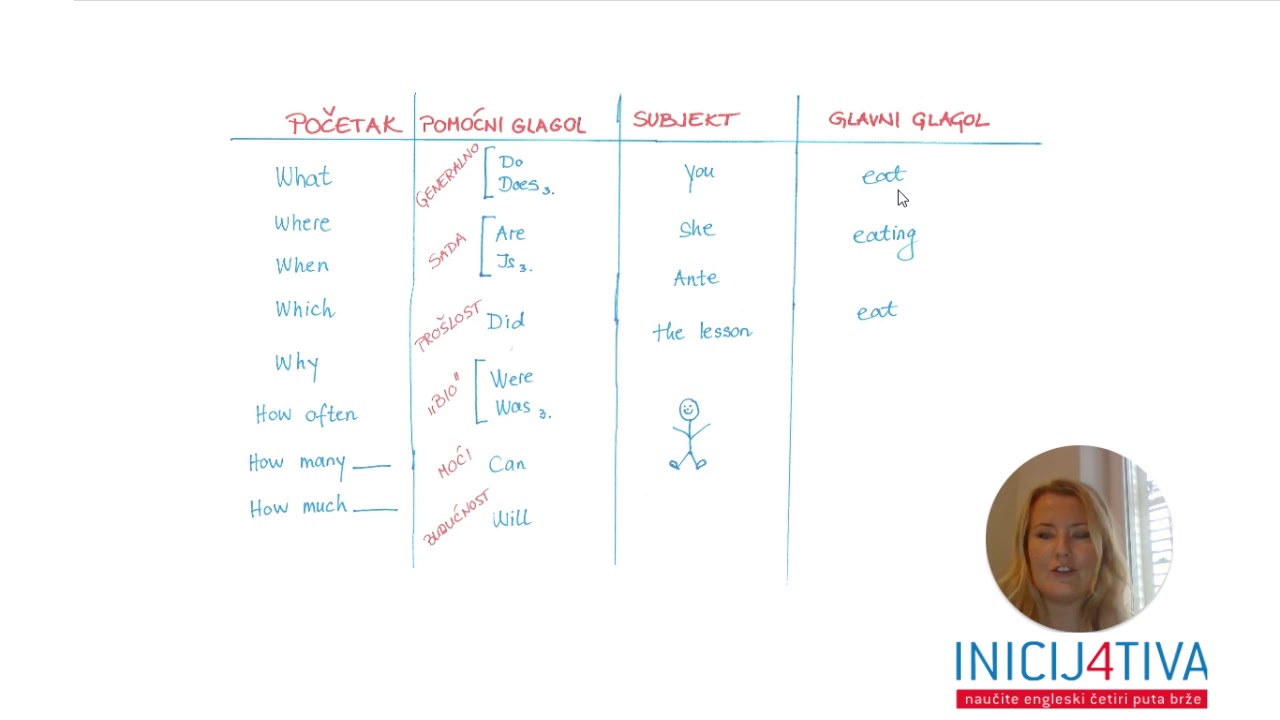 POČETAK POMOĆNI GLAGOL SUBJEKT GLAVNI GLAGOL
What GENERALNO Do you eat
Does 3.
Where SADA Are She eating
When Is 3. Ante
Which PROŠLOST Did the lesson eat
Why „BIO" Were
How often Was 3.
How many ___ MOĆI Can
How much ___ BUDUĆNOST Will
INICIJ4TIVA
naučite engleski četiri puta brže